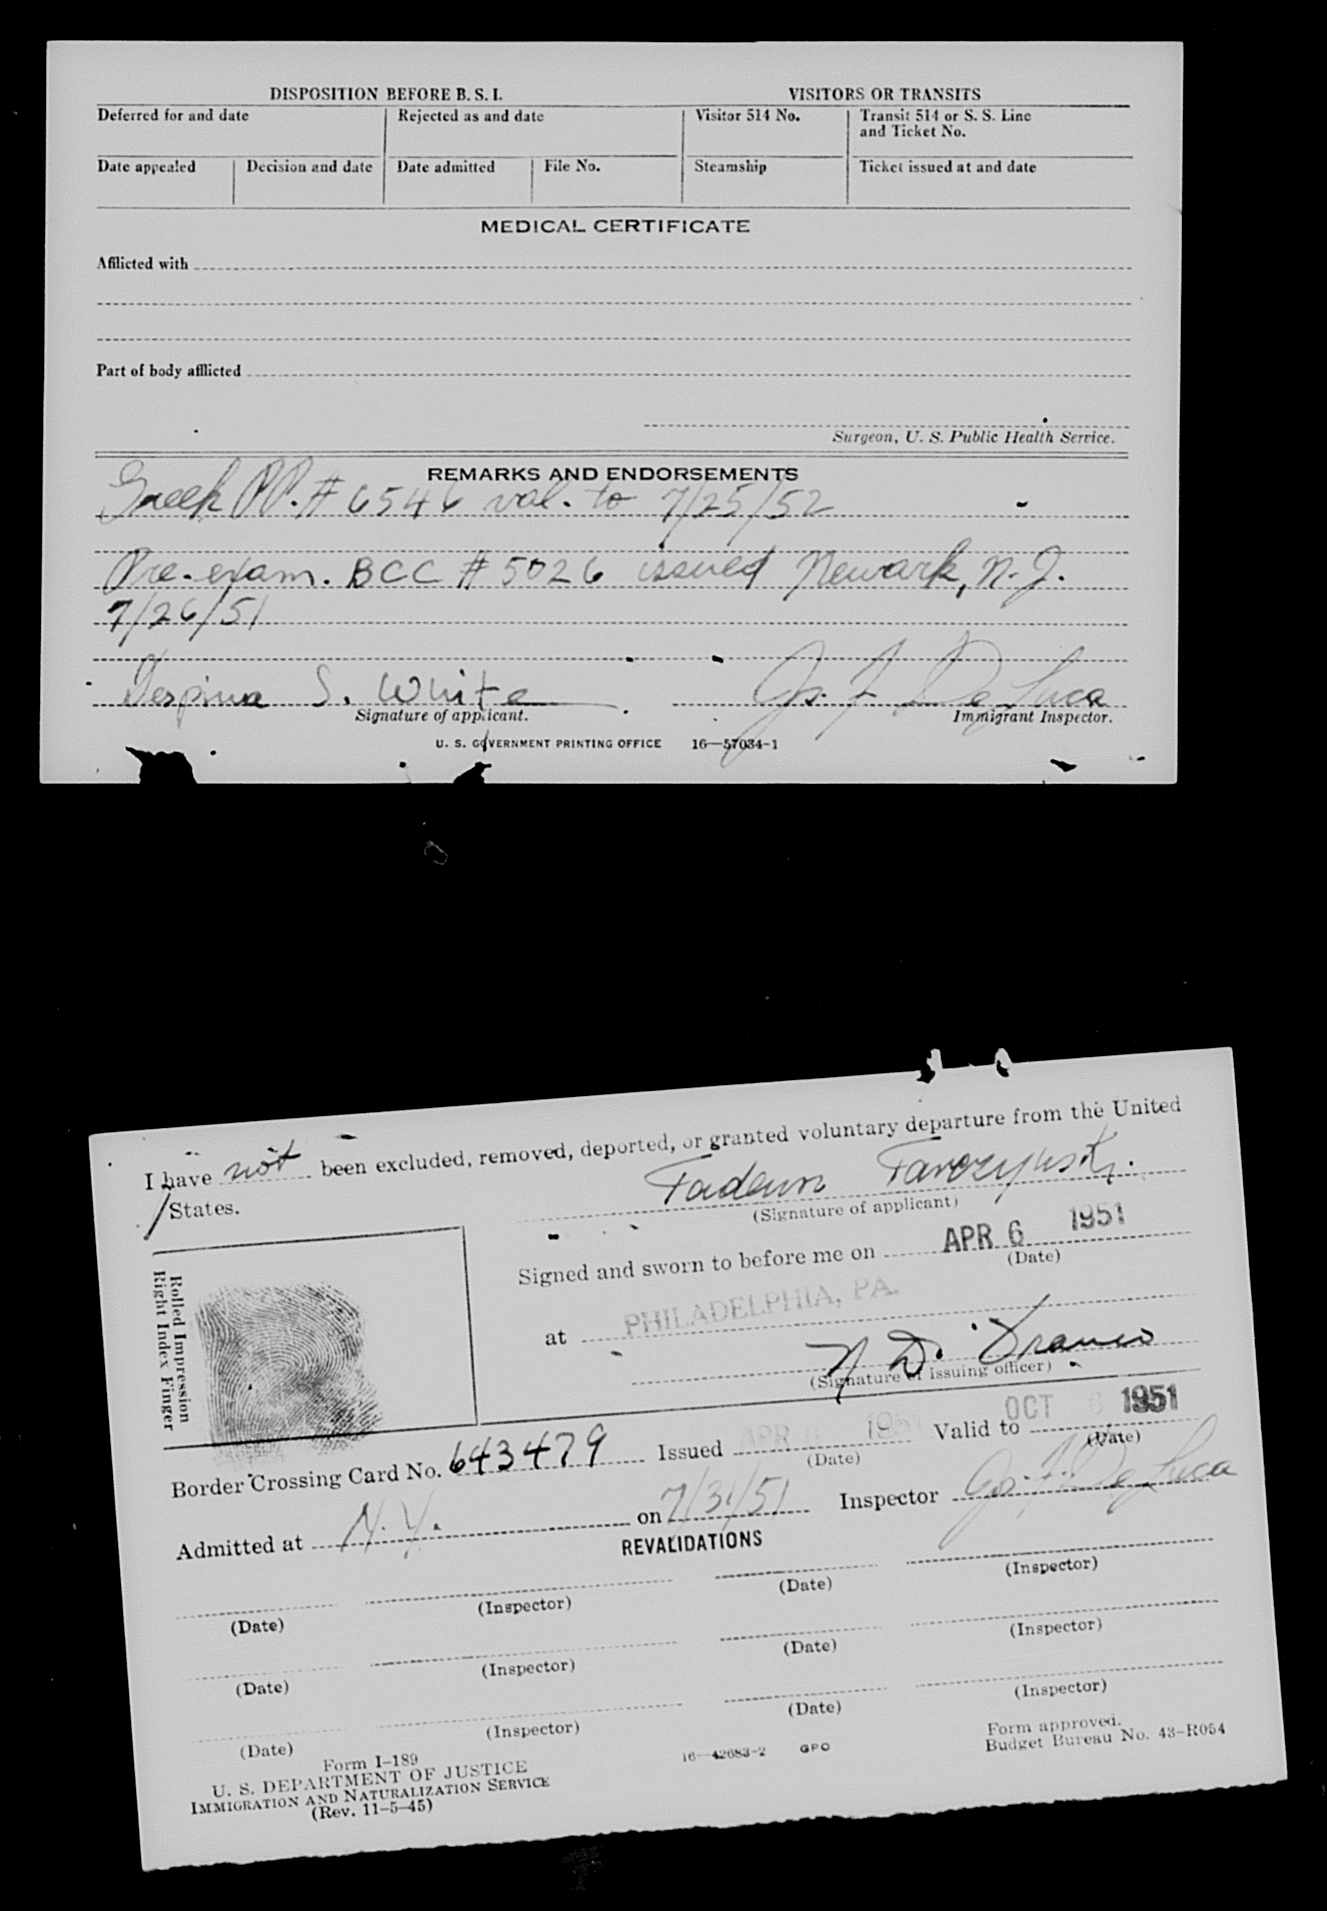 DISPOSITION BEFORE B. S. I. VISITORS OR TRANSITS
Deferred for and date Rejected as and date Visitor 514 No. Transit 514 or S. S. Line
and Ticket No.
Date appealed Decision and date Date admitted File No. Steamship Ticket issued at and date
MEDICAL CERTIFICATE
Afflicted with
Part of body afflicted
Surgeon, U. S. Public Health Service.
REMARKS AND ENDORSEMENTS
Greek PP. # 6546 val. to 7/25/52
Pre-exam. BCC # 5026 issued Newark, N.J.
7/26/51
Despina S. White Jos. F. De Luca
Signature of applicant. Immigrant Inspector.
U. S. GOVERNMENT PRINTING OFFICE 16—57034-1
I have not been excluded, removed, deported, or granted voluntary departure from the United
States.
(Signature of applicant)
Signed and sworn to before me on APR 6 1951
(Date)
at PHILADELPHIA, PA.
(Signature of issuing officer)
Rolled Impression
Right Index Finger
Border Crossing Card No. 643479 Issued APR 1951 Valid to OCT 6 1951
(Date) (Date)
Admitted at N.Y. on 7/31/51 Inspector Jos. F. De Luca
REVALIDATIONS
(Date) (Inspector) (Date) (Inspector)
(Date) (Inspector) (Date) (Inspector)
(Date) (Inspector) (Date) (Inspector)
Form I-189
U. S. DEPARTMENT OF JUSTICE
IMMIGRATION AND NATURALIZATION SERVICE
(Rev. 11-5-45)
16—42683-2 GPO
Form approved.
Budget Bureau No. 43-R054